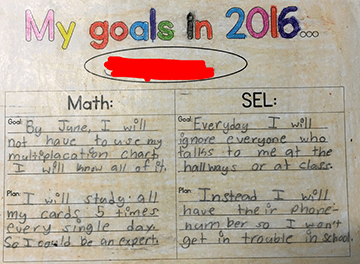 My goals in 2016...
Math:
Goal: By June, I will
not have to use my
multiplacation chart
I will know all of it.
Plan: I will study all
my cards 5 times
every single day.
So I could be an expert.
SEL:
Goal: Everyday I will
ignore everyone who
talks to me at the
hallways or at class.
Plan: Instead I will
have their phone-
number so I won't
get in trouble in school.